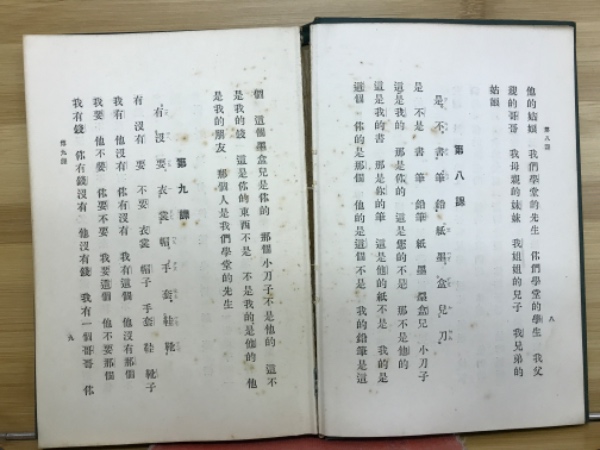 第八課
八
他的姑娘 我們學堂的先生 你們學堂的學生 我父
親的哥哥 我母親的妹妹 我姐姐的兒子 我兄弟的
姑娘
第八課
是 不 書 筆 鉛 紙 墨 盒 兒 刀
是 不是 書 筆 鉛筆 紙 墨 墨盒兒 小刀子
這是我的 那是你的 這是您的不是 那不是他的
這是我的書 那是你的筆 這是他的紙不是 我的是
這個 你的是那個 他的是這個不是 我的鉛筆是這
個 這個墨盒兒是你的 那個小刀子不是他的 這不
是我的錢 這是你的東西不是 不是我的是他的 他
是我的朋友 那個人是我們學堂的先生
第九課
有 沒 要 衣 裳 帽 手 套 鞋 靴
有 沒有 要 不要 衣裳 帽子 手套 鞋 靴子
我有 他沒有 你有沒有 我有這個 他沒有那個
我要 他不要 你要不要 我要這個 他不要那個
我有錢 你有錢沒有 他沒有錢 我有一個哥哥 你
第九課
九